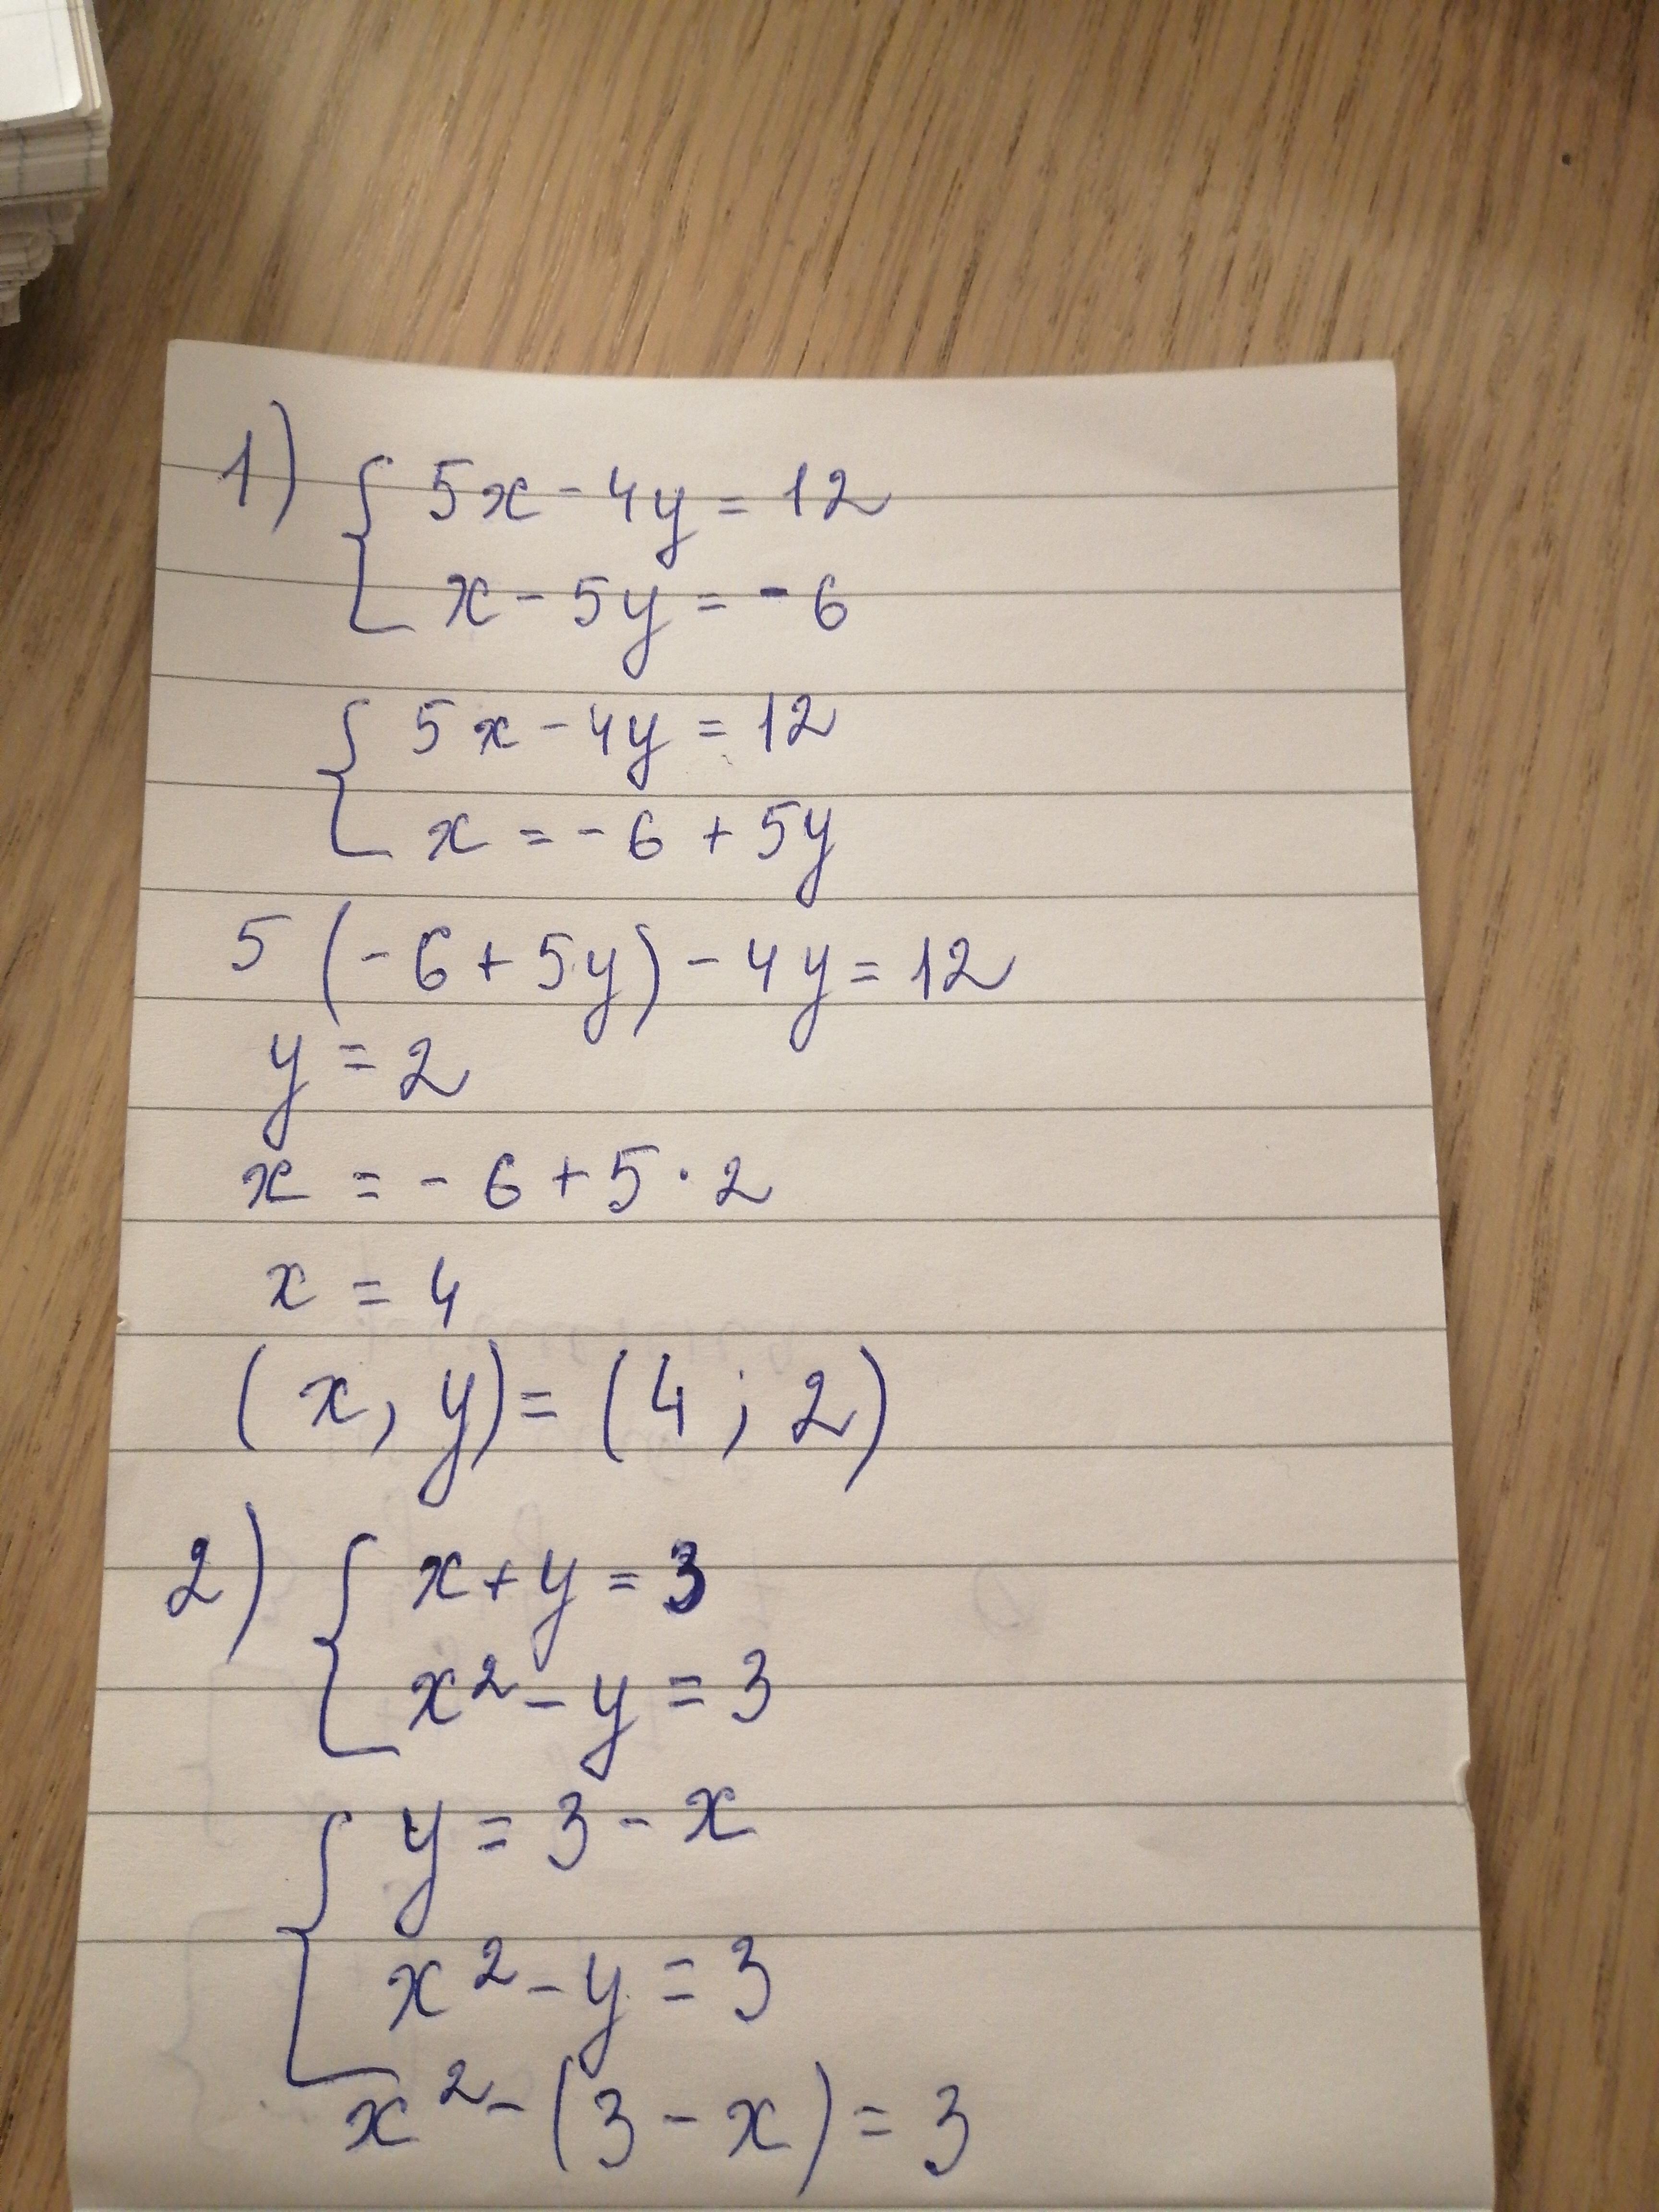 1) { 5x - 4y = 12
x - 5y = - 6
{ 5x - 4y = 12
x = - 6 + 5y
5 (- 6 + 5y) - 4y = 12
y = 2
x = - 6 + 5 · 2
x = 4
(x, y) = (4 ; 2)
2) { x + y = 3
x² - y = 3
{ y = 3 - x
x² - y = 3
x² - (3 - x) = 3